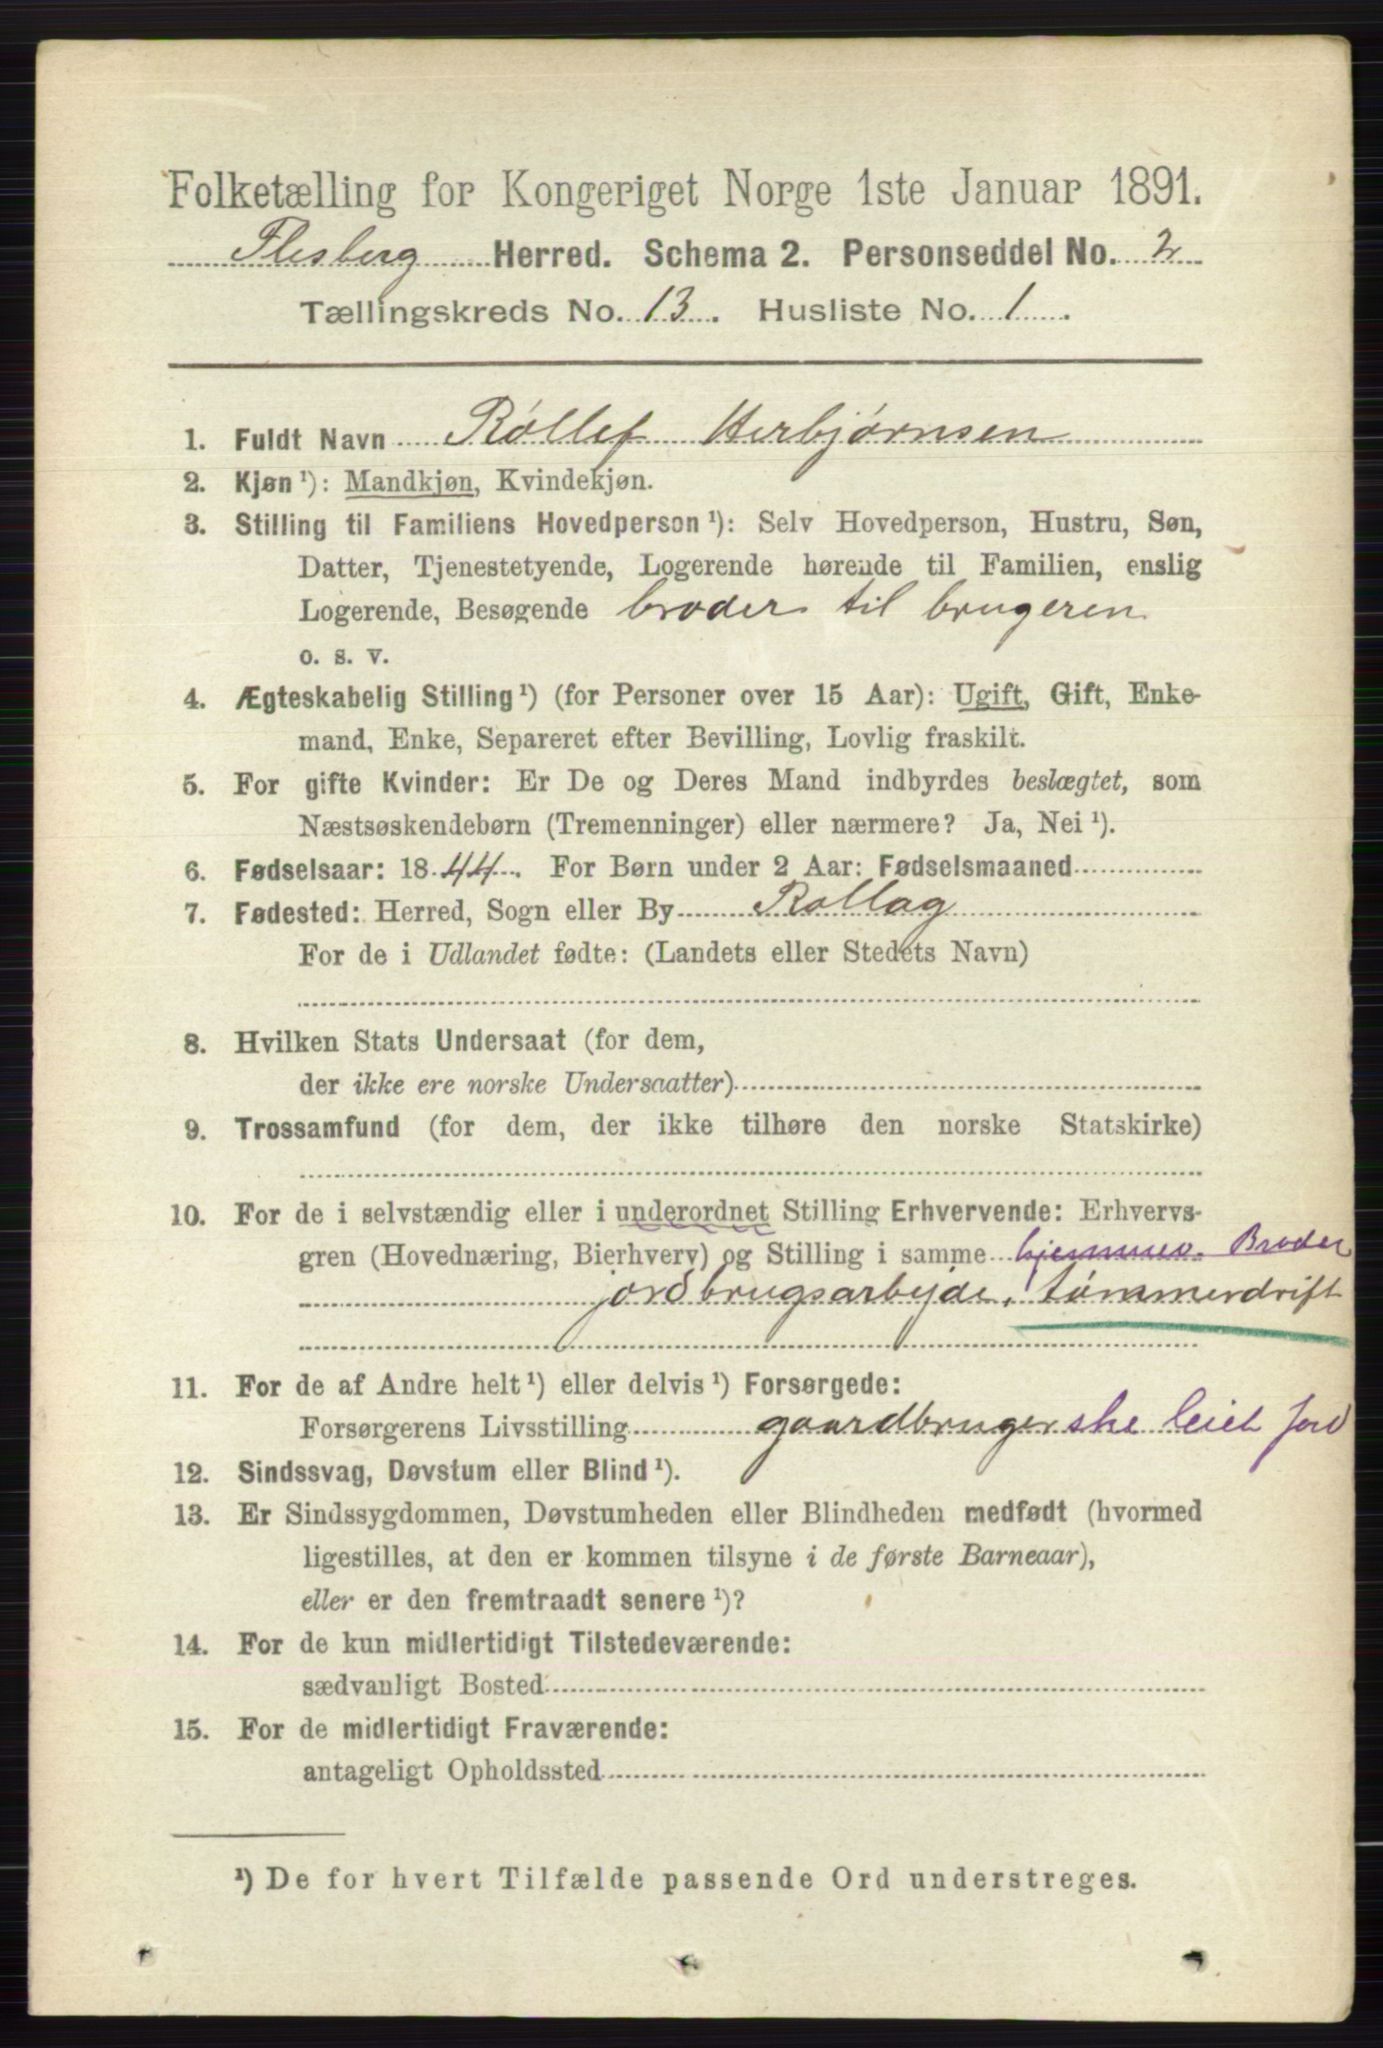 Folketælling for Kongeriget Norge 1ste Januar 1891.
Flesberg Herred. Schema 2. Personseddel No. 2
Tællingskreds No. 13. Husliste No. 1.
1. Fuldt Navn Rollef Herbjørnsen
2. Kjøn ¹): Mandkjøn, Kvindekjøn.
3. Stilling til Familiens Hovedperson ¹): Selv Hovedperson, Hustru, Søn,
Datter, Tjenestetyende, Logerende hørende til Familien, enslig
Logerende, Besøgende broder til brugeren
o. s. v.
4. Ægteskabelig Stilling ¹) (for Personer over 15 Aar): Ugift, Gift, Enke-
mand, Enke, Separeret efter Bevilling, Lovlig fraskilt.
5. For gifte Kvinder: Er De og Deres Mand indbyrdes beslægtet, som
Næstsøskendebørn (Tremenninger) eller nærmere? Ja, Nei ¹).
6. Fødselsaar: 1844. For Børn under 2 Aar: Fødselsmaaned
7. Fødested: Herred, Sogn eller By Rollag
For de i Udlandet fødte: (Landets eller Stedets Navn)
8. Hvilken Stats Undersaat (for dem,
der ikke ere norske Undersaatter)
9. Trossamfund (for dem, der ikke tilhøre den norske Statskirke)
10. For de i selvstændig eller i underordnet Stilling Erhvervende: Erhvervs-
gren (Hovednæring, Bierhverv) og Stilling i samme hjemmev. Broder
jordbrugsarbejde, tømmerdrift
11. For de af Andre helt ¹) eller delvis ¹) Forsørgede:
Forsørgerens Livsstilling gaardbrugerske leiet jord
12. Sindssvag, Døvstum eller Blind ¹).
13. Er Sindssygdommen, Døvstumheden eller Blindheden medfødt (hvormed
ligestilles, at den er kommen tilsyne i de første Barneaar),
eller er den fremtraadt senere ¹)?
14. For de kun midlertidigt Tilstedeværende:
sædvanligt Bosted
15. For de midlertidigt Fraværende:
antageligt Opholdssted
¹) De for hvert Tilfælde passende Ord understreges.